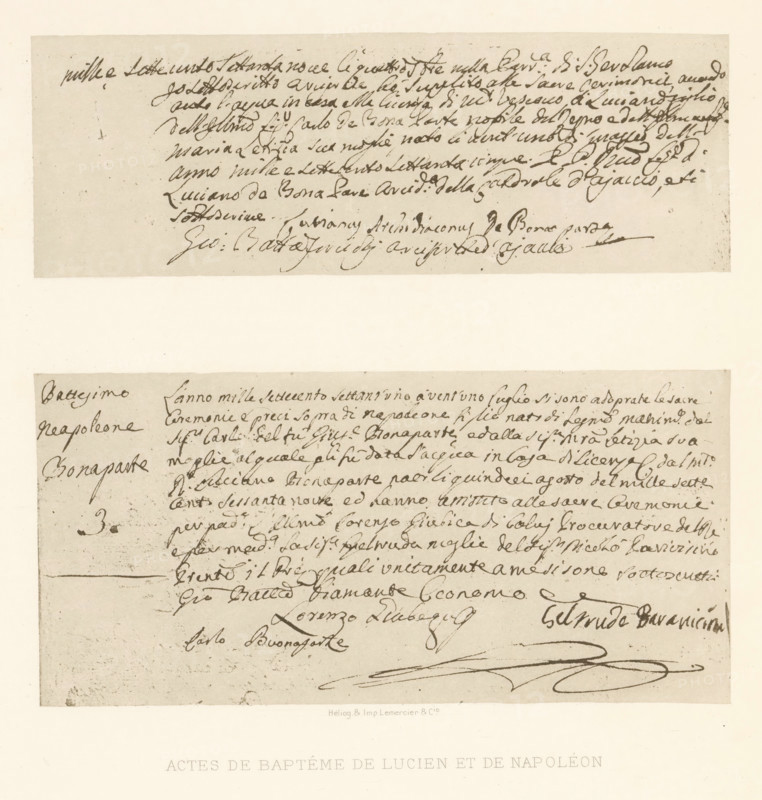 mille e Settecento Settanta nove li quattro 7bre nella di S. Gerolamo
Io Sottoscritto ho Supplito alle Sacre Cerimonie avendo
avuto l'acqua in casa colla licenza di Vescovo, a Luciano figlio
dell Illmo Sigr Carlo De Bona Parte nobile del Regno e della
Maria Letizia Sua moglie nato li vent'uno di dell
anno mille e Settecento Settanta cinque. Sigr D.
Luciano de Bona Parte Arcid. della Catedrale d'Ajaccio, e si
Sottoscrive. Lucianus Archidiaconus De Bona parte
Gio: Batta Arciprete d'Ajaccio
Battesimo
Neapoleone
Bonaparte
3.
L'anno mille settecento settant'uno a vent'uno Luglio si sono adoprate le sacre
Ceremonie e preci sopra di Napoleone figlio nato di legmo matrimo dal
Sigr Carlo del fù Giusse Bonaparte, e dalla Sigra Ma Letizia sua
moglie al quale gli fù data l'acqua in Casa di licenza dal
Luciano Bonaparte nato li quindeci agosto del mille sette
Cento Sessanta nove ed hanno assistito alle sacre Ceremonie
per pado l'Illmo Lorenzo Giubica di Calvi Procuratore del Re
e per madra la Sigra Geltruda moglie del Sigr Nicolò Paravicino
Presente il Pre quali unitamente a me si sono sottoscritti
Gio Batta Diamante Economo
Lorenzo Giubega Geltrude Paravicina
Carlo Buonaparte
Héliog. & Imp. Lemercier & Cie
ACTES DE BAPTÊME DE LUCIEN ET DE NAPOLÉON